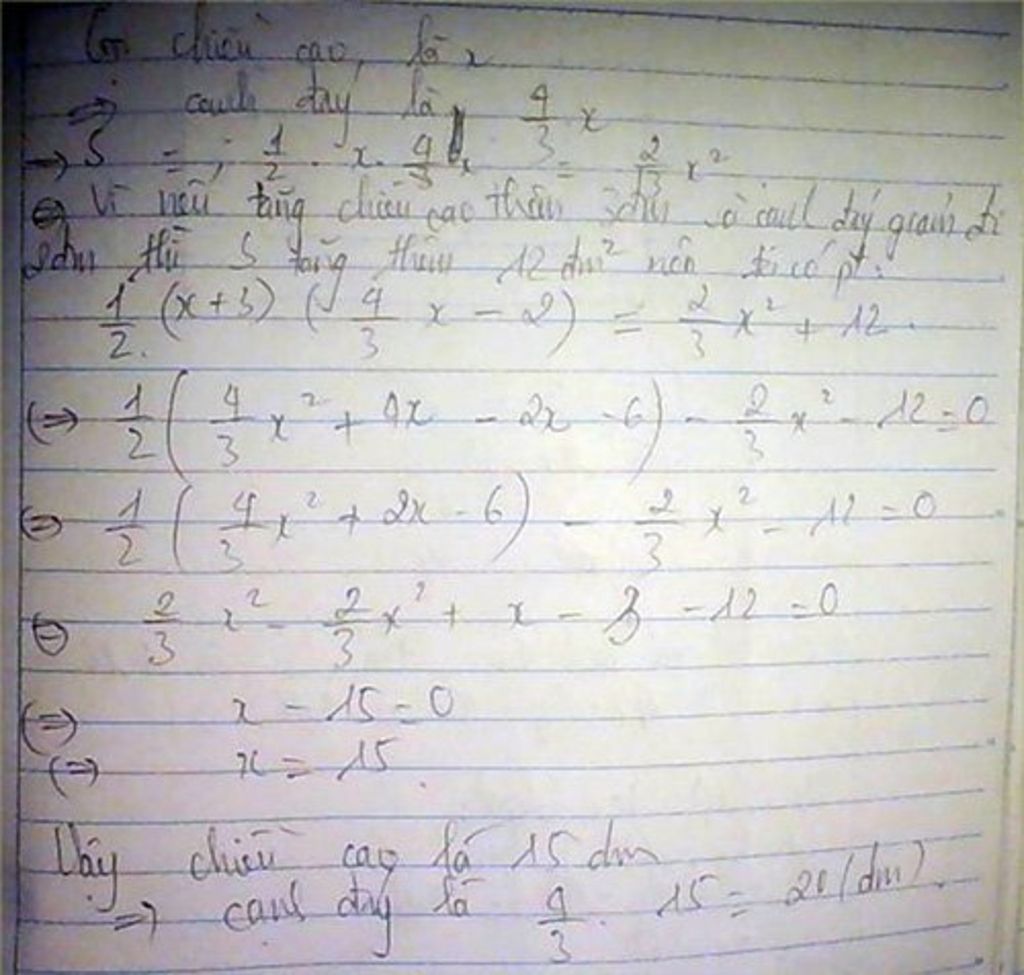 Gọi chiều cao là x
=> cạnh đáy là 4/3 x
-> S = 1/2 . x . 4/3 x = 2/3 x²
Vì nếu tăng chiều cao thêm 3dm và cạnh đáy giảm đi
2dm thì S tăng thêm 12 dm² nên ta có pt:
1/2 (x+3) (4/3 x - 2) = 2/3 x² + 12.
(=>) 1/2 (4/3 x² + 4x - 2x - 6) - 2/3 x² - 12 = 0
(=>) 1/2 (4/3 x² + 2x - 6) - 2/3 x² - 12 = 0
2/3 x² - 2/3 x² + x - 3 - 12 = 0
(=>) x - 15 = 0
(=>) x = 15.
Vậy chiều cao là 15 dm
=> cạnh đáy là 4/3 . 15 = 20 (dm).